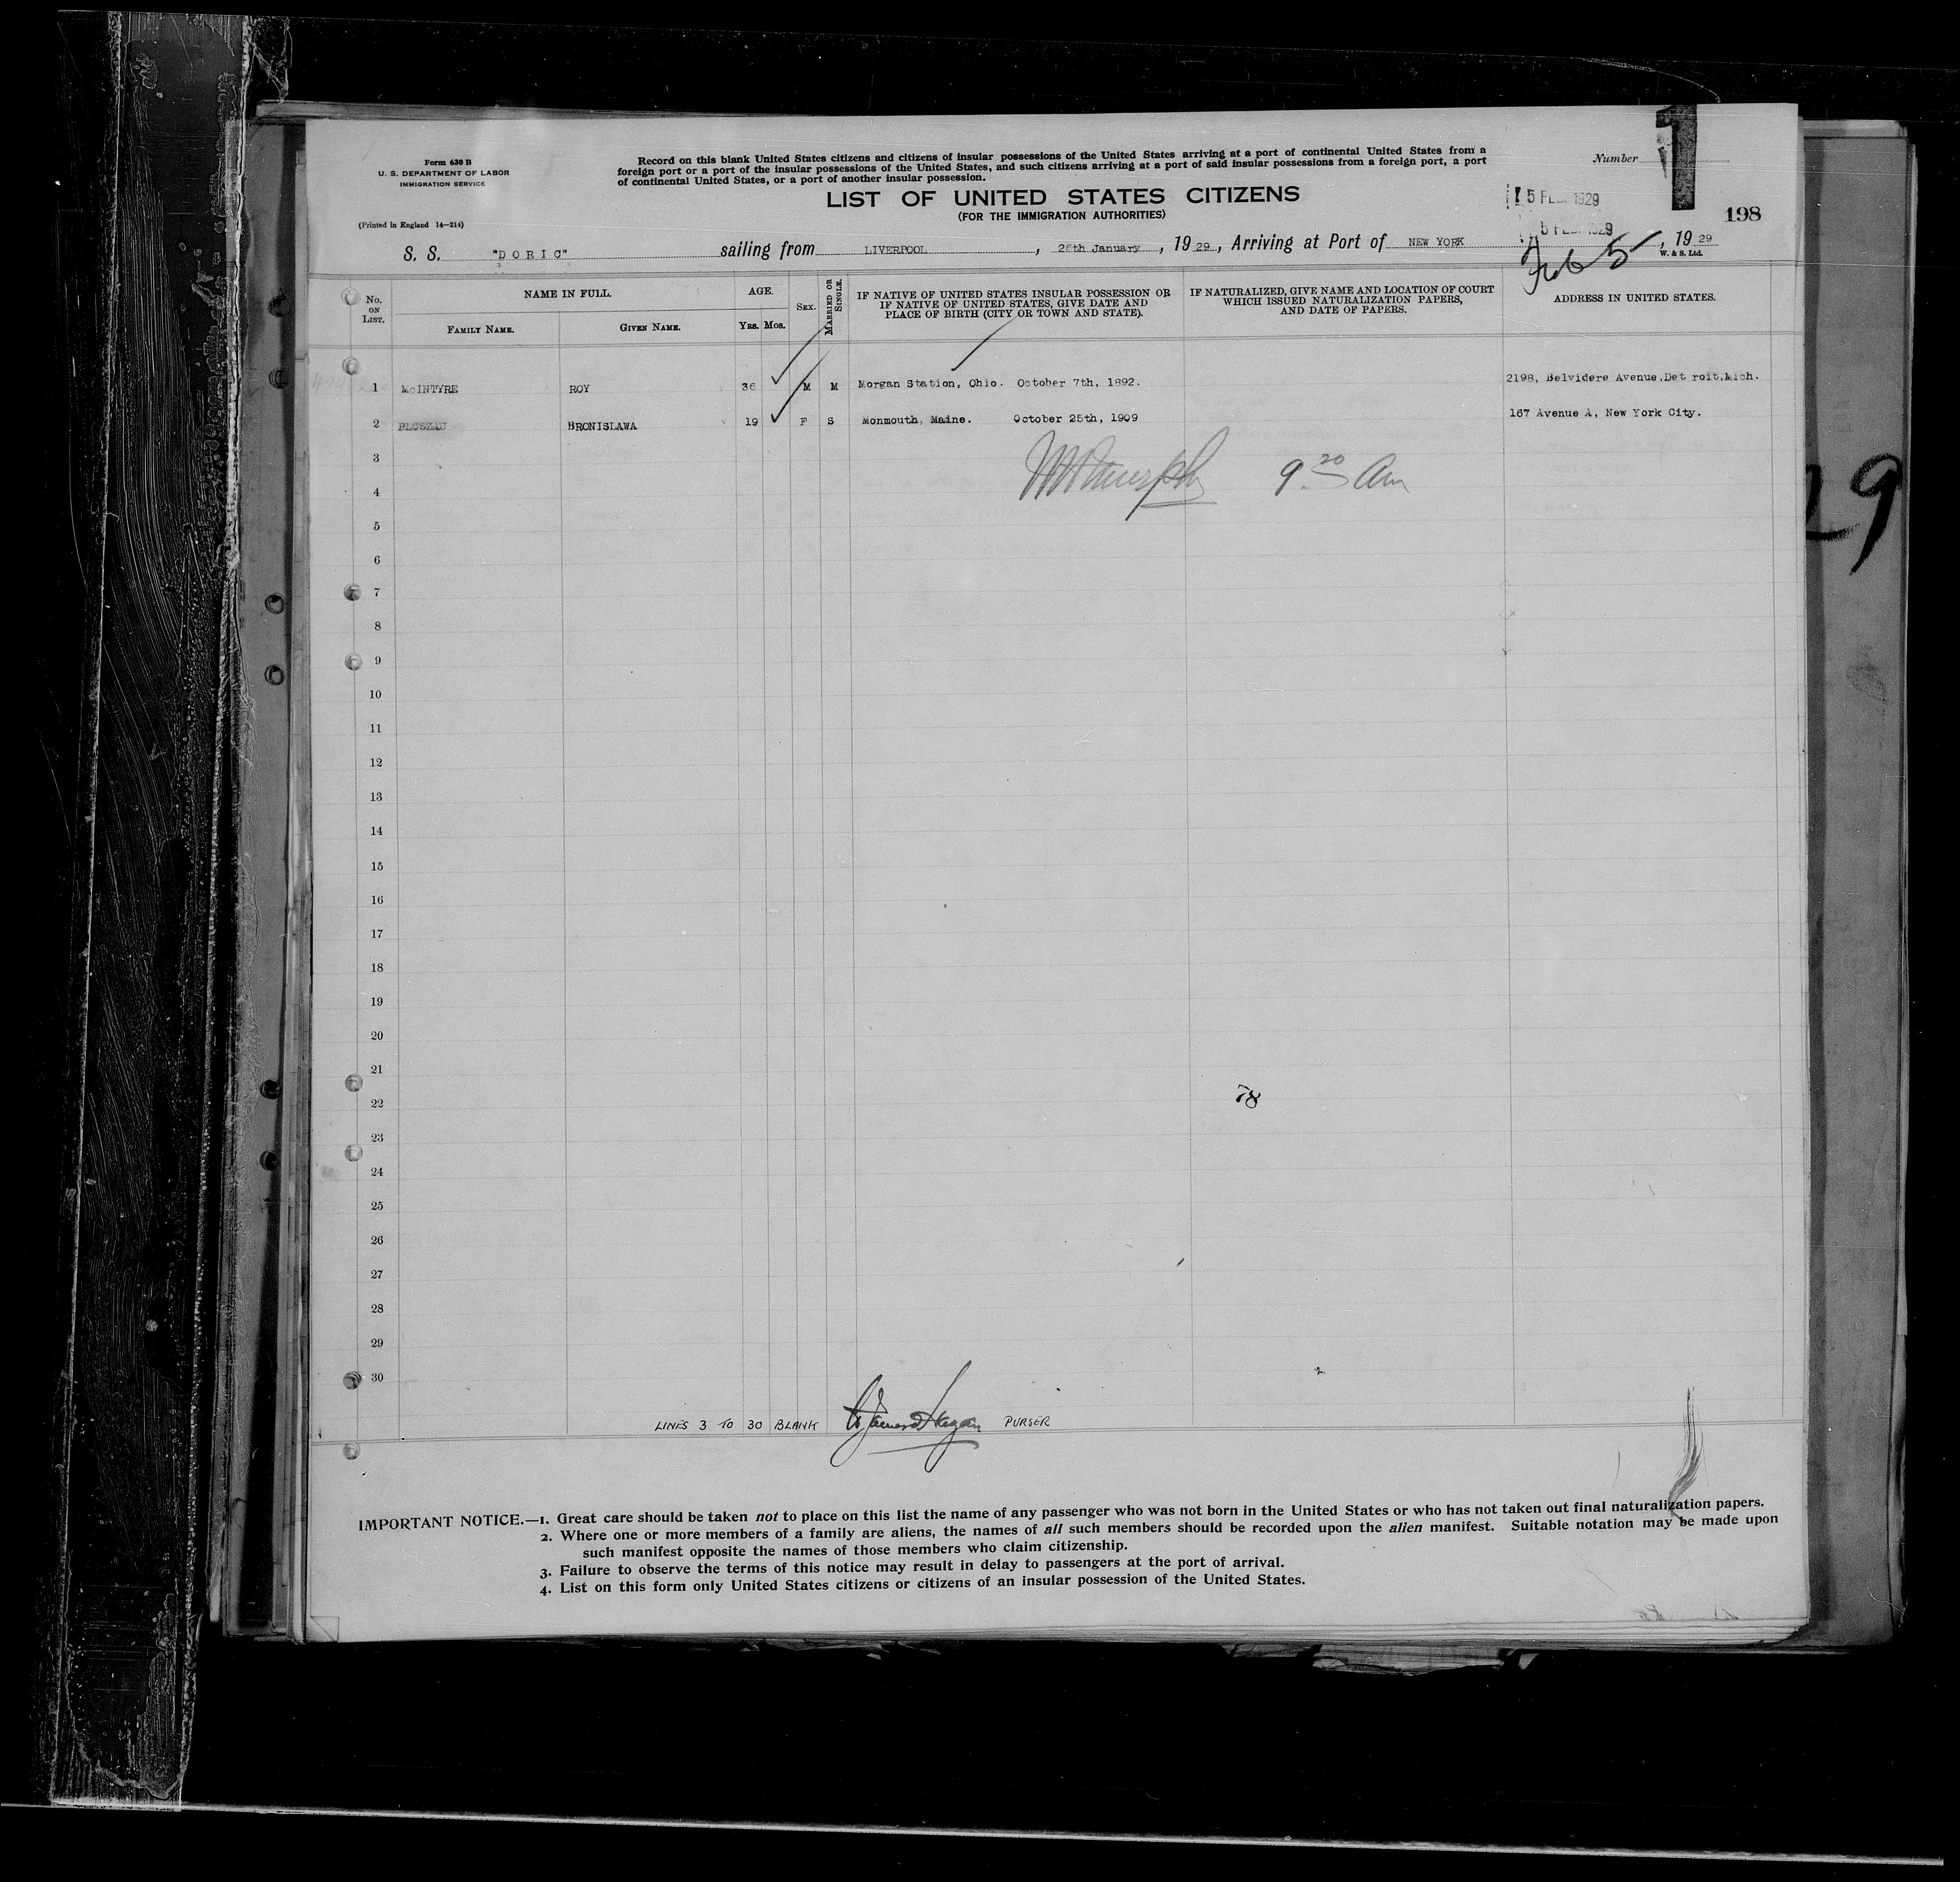 Form 630 B
U. S. DEPARTMENT OF LABOR
IMMIGRATION SERVICE
(Printed in England 14—214)
Record on this blank United States citizens and citizens of insular possessions of the United States arriving at a port of continental United States from a
foreign port or a port of the insular possessions of the United States, and such citizens arriving at a port of said insular possessions from a foreign port, a port
of continental United States, or a port of another insular possession.
LIST OF UNITED STATES CITIZENS
(FOR THE IMMIGRATION AUTHORITIES)
Number
1
5 FEB. 1929
5 FEB. 1929
198
S. S. "DORIC" sailing from LIVERPOOL, 26th January, 1929, Arriving at Port of NEW YORK Feb 5, 1929
W. & S. Ltd.
No. ON LIST.
NAME IN FULL.
FAMILY NAME.
GIVEN NAME.
AGE.
YRS. MOS.
SEX.
MARRIED OR SINGLE.
IF NATIVE OF UNITED STATES INSULAR POSSESSION OR
IF NATIVE OF UNITED STATES, GIVE DATE AND
PLACE OF BIRTH (CITY OR TOWN AND STATE).
IF NATURALIZED, GIVE NAME AND LOCATION OF COURT
WHICH ISSUED NATURALIZATION PAPERS,
AND DATE OF PAPERS.
ADDRESS IN UNITED STATES.
1 McINTYRE ROY 36 M M Morgan Station, Ohio. October 7th, 1892. 2198, Belvidere Avenue,Det roit,Mich.
2 BRONISLAWA 19 F S Monmouth, Maine. October 25th, 1909 167 Avenue A, New York City.
3
9 20 Am
4
5
6
7
8
9
10
11
12
13
14
15
16
17
18
19
20
21
22
78
23
24
25
26
27
28
29
30
LINES 3 TO 30 BLANK PURSER
IMPORTANT NOTICE.—1. Great care should be taken not to place on this list the name of any passenger who was not born in the United States or who has not taken out final naturalization papers.
2. Where one or more members of a family are aliens, the names of all such members should be recorded upon the alien manifest. Suitable notation may be made upon
such manifest opposite the names of those members who claim citizenship.
3. Failure to observe the terms of this notice may result in delay to passengers at the port of arrival.
4. List on this form only United States citizens or citizens of an insular possession of the United States.
29